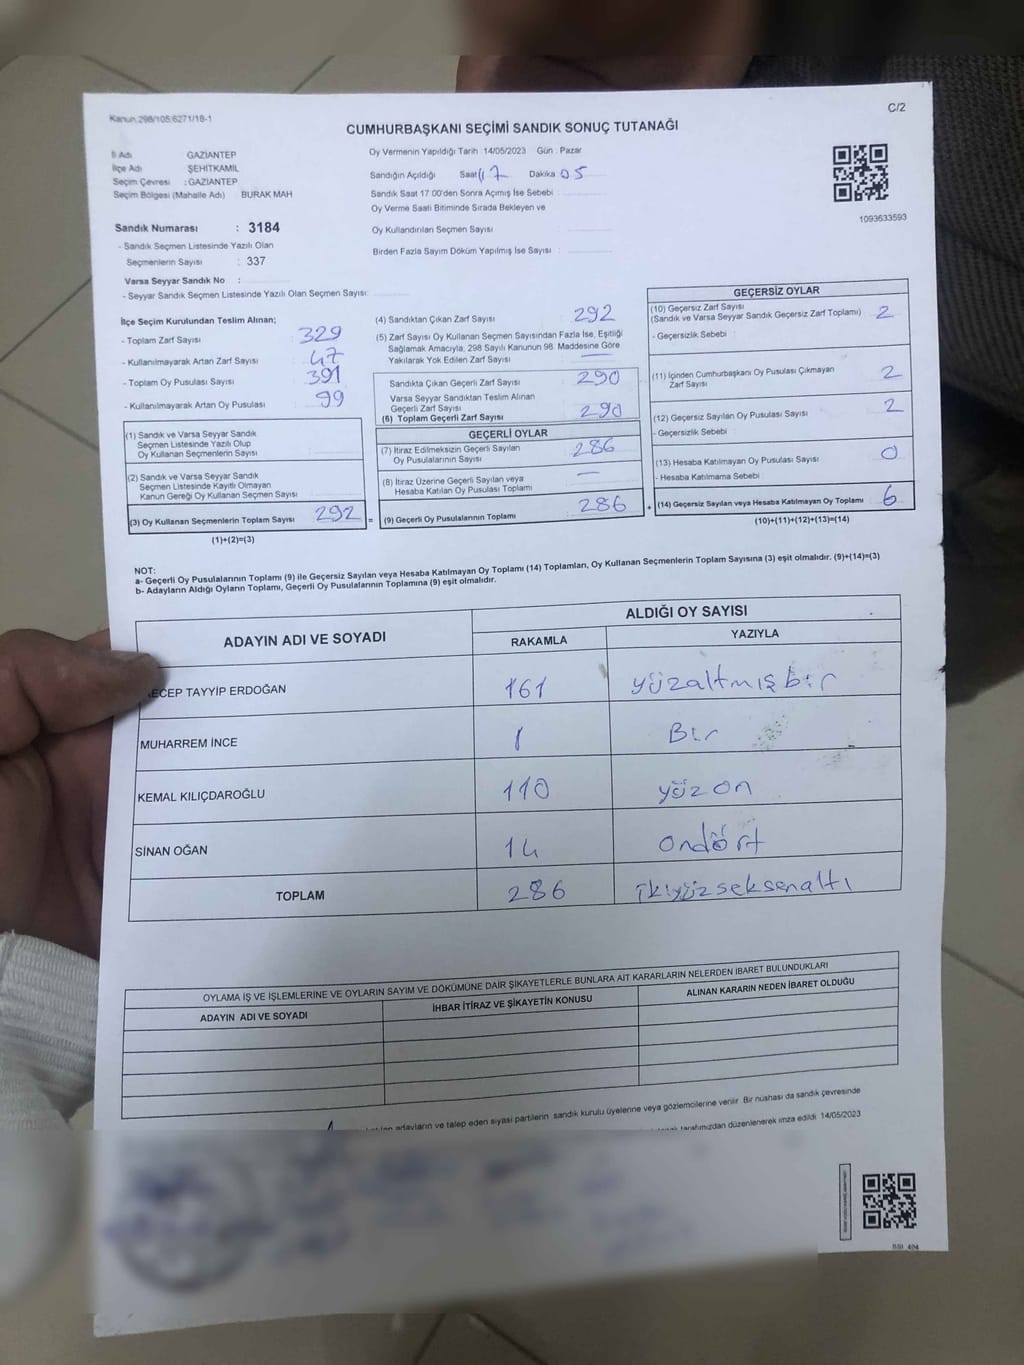 Kanun:298/105;6271/18-1
C/2
CUMHURBAŞKANI SEÇİMİ SANDIK SONUÇ TUTANAĞI
İl Adı GAZİANTEP
İlçe Adı ŞEHİTKAMİL
Seçim Çevresi : GAZİANTEP
Seçim Bölgesi (Mahalle Adı) BURAK MAH
Sandık Numarası : 3184
- Sandık Seçmen Listesinde Yazılı Olan
Seçmenlerin Sayısı : 337
Varsa Seyyar Sandık No :
- Seyyar Sandık Seçmen Listesinde Yazılı Olan Seçmen Sayısı:
Oy Vermenin Yapıldığı Tarih 14/05/2023 Gün : Pazar
Sandığın Açıldığı Saat 17 Dakika 05
Sandık Saat 17:00'den Sonra Açımış İse Sebebi
Oy Verme Saati Bitiminde Sırada Bekleyen ve
Oy Kullandırılan Seçmen Sayısı
Birden Fazla Sayım Döküm Yapılmış İse Sayısı
1093633593
İlçe Seçim Kurulundan Teslim Alınan;
- Toplam Zarf Sayısı 329
- Kullanılmayarak Artan Zarf Sayısı 47
- Toplam Oy Pusulası Sayısı 391
- Kullanılmayarak Artan Oy Pusulası 99
(1) Sandık ve Varsa Seyyar Sandık
Seçmen Listesinde Yazılı Olup
Oy Kullanan Seçmenlerin Sayısı
(2) Sandık ve Varsa Seyyar Sandık
Seçmen Listesinde Kayıtlı Olmayan
Kanun Gereği Oy Kullanan Seçmen Sayısı
(3) Oy Kullanan Seçmenlerin Toplam Sayısı 292 =
(1)+(2)=(3)
(4) Sandıktan Çıkan Zarf Sayısı 292
(5) Zarf Sayısı Oy Kullanan Seçmen Sayısından Fazla İse, Eşitliği
Sağlamak Amacıyla, 298 Sayılı Kanunun 98. Maddesine Göre
Yakılarak Yok Edilen Zarf Sayısı —
Sandıkta Çıkan Geçerli Zarf Sayısı 290
Varsa Seyyar Sandıktan Teslim Alınan
Geçerli Zarf Sayısı
(6) Toplam Geçerli Zarf Sayısı 290
GEÇERLİ OYLAR
(7) İtiraz Edilmeksizin Geçerli Sayılan
Oy Pusulalarının Sayısı 286
(8) İtiraz Üzerine Geçerli Sayılan veya
Hesaba Katılan Oy Pusulası Toplamı —
(9) Geçerli Oy Pusulalarının Toplamı 286 +
GEÇERSİZ OYLAR
(10) Geçersiz Zarf Sayısı
(Sandık ve Varsa Seyyar Sandık Geçersiz Zarf Toplamı) 2
- Geçersizlik Sebebi
(11) İçinden Cumhurbaşkanı Oy Pusulası Çıkmayan
Zarf Sayısı 2
(12) Geçersiz Sayılan Oy Pusulası Sayısı 2
- Geçersizlik Sebebi
(13) Hesaba Katılmayan Oy Pusulası Sayısı 0
- Hesaba Katılmama Sebebi
(14) Geçersiz Sayılan veya Hesaba Katılmayan Oy Toplamı 6
(10)+(11)+(12)+(13)=(14)
NOT:
a- Geçerli Oy Pusulalarının Toplamı (9) ile Geçersiz Sayılan veya Hesaba Katılmayan Oy Toplamı (14) Toplamları, Oy Kullanan Seçmenlerin Toplam Sayısına (3) eşit olmalıdır. (9)+(14)=(3)
b- Adayların Aldığı Oyların Toplamı, Geçerli Oy Pusulalarının Toplamına (9) eşit olmalıdır.
ADAYIN ADI VE SOYADI
ALDIĞI OY SAYISI
RAKAMLA YAZIYLA
ECEP TAYYİP ERDOĞAN 161 yüzaltmışbir
MUHARREM İNCE 1 Bir
KEMAL KILIÇDAROĞLU 110 yüzon
SİNAN OĞAN 14 ondört
TOPLAM 286 ikiyüzseksenaltı
OYLAMA İŞ VE İŞLEMLERİNE VE OYLARIN SAYIM VE DÖKÜMÜNE DAİR ŞİKAYETLERLE BUNLARA AİT KARARLARIN NELERDEN İBARET BULUNDUKLARI
ADAYIN ADI VE SOYADI İHBAR İTİRAZ VE ŞİKAYETİN KONUSU ALINAN KARARIN NEDEN İBARET OLDUĞU
adayların ve talep eden siyasi partilerin sandık kurulu üyelerine veya gözlemcilerine verilir. Bir nüshası da sandık çevresinde
tarafımızdan düzenlenerek imza edildi. 14/05/2023